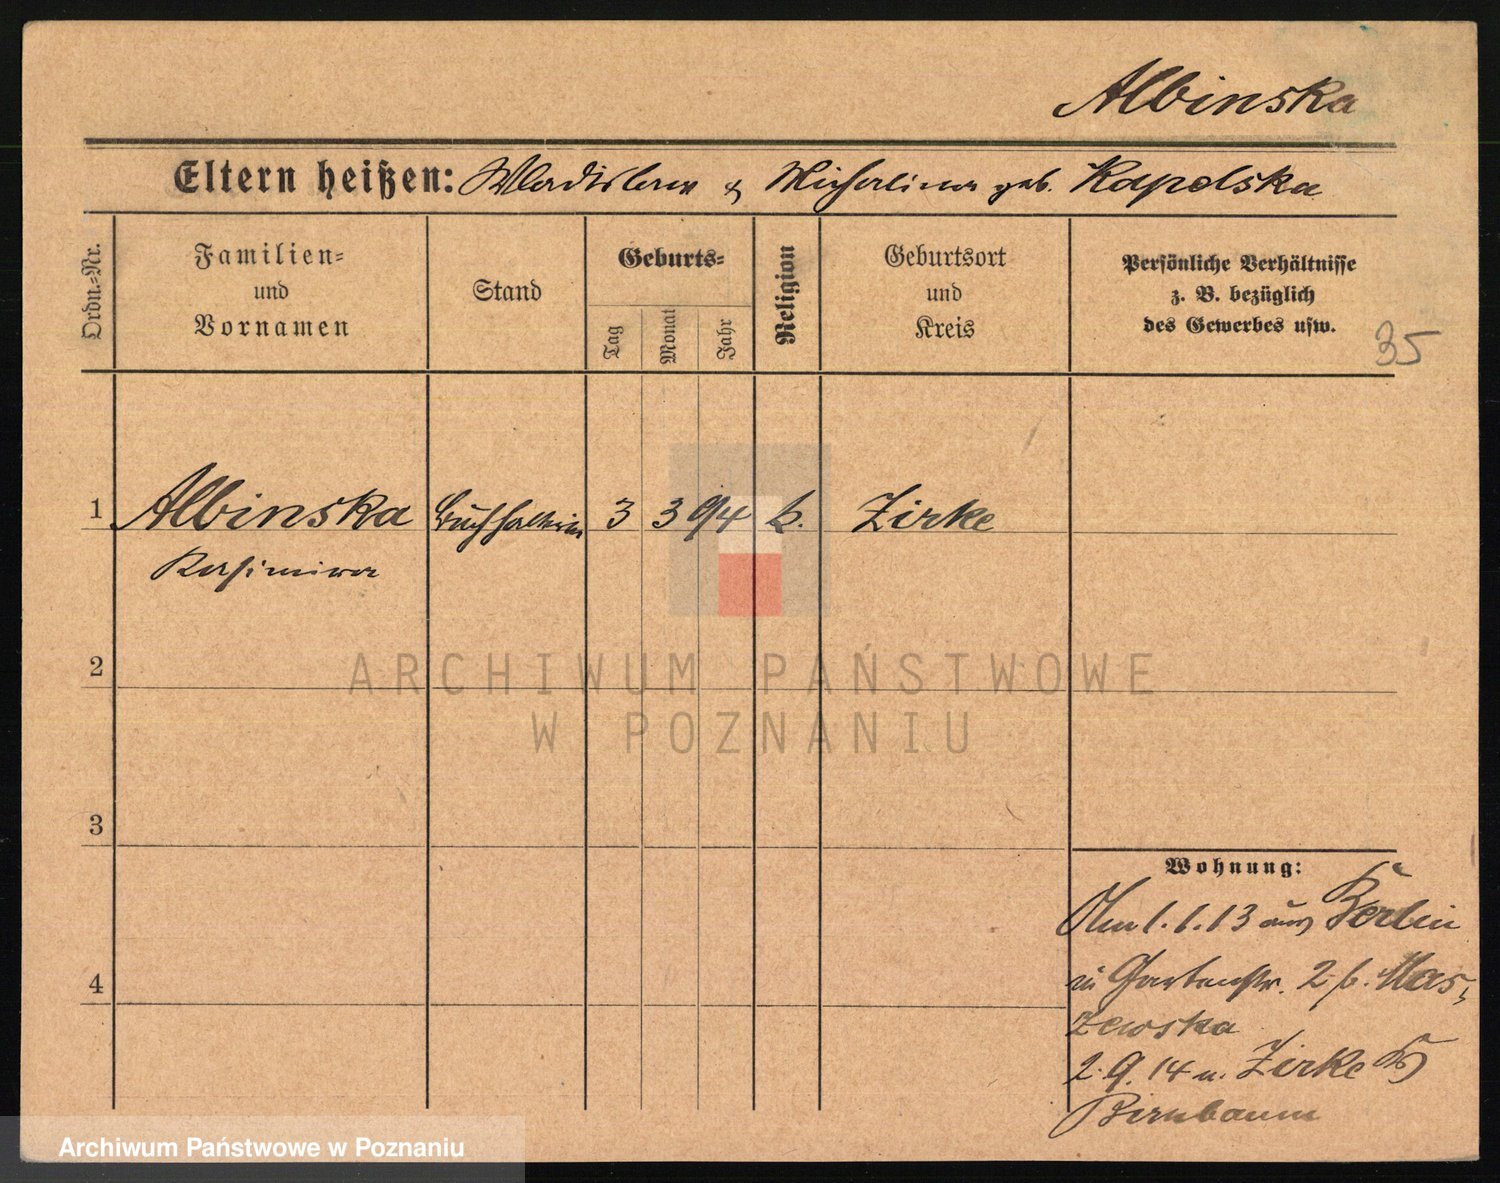 Albinska
Eltern heißen: Wladislaw & Michalina geb. Kapelska
Ordn.-Nr.
Familien-
und
Vornamen
Stand
Geburts-
Tag
Monat
Jahr
Religion
Geburtsort
und
Kreis
Persönliche Verhältnisse
z. B. bezüglich
des Gewerbes usw.
35
1 Albinska Buchhalterin 3 3 94 k. Zirke
Kasimira
2
3
4
Wohnung:
1.1.13 aus Berlin
in Gartenstr. 2 b. Mas-
zewska
2.9.14 n. Zirke Kr
Birnbaum
ARCHIWUM PAŃSTWOWE
W POZNANIU
Archiwum Państwowe w Poznaniu